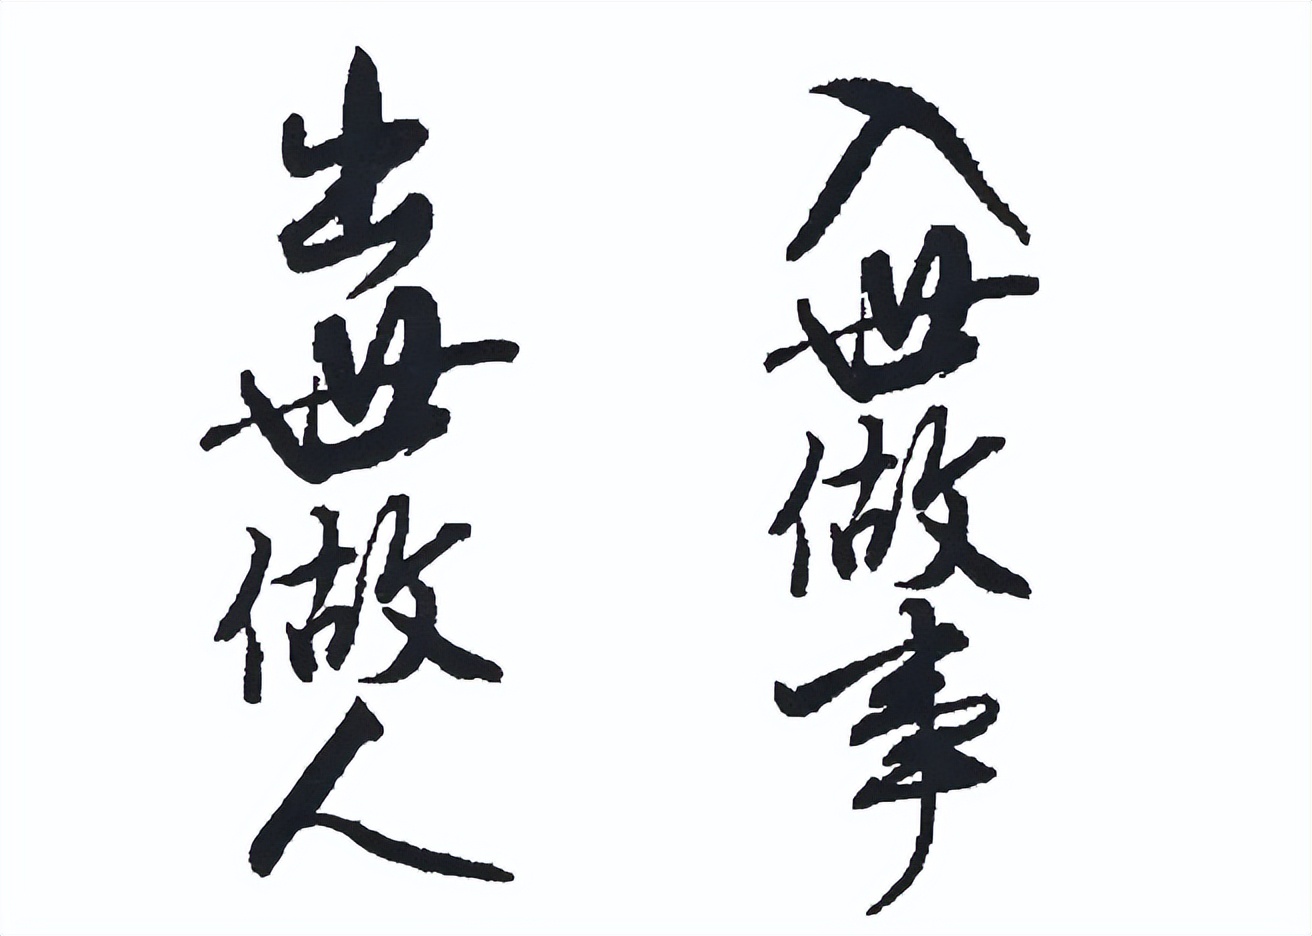 入世做事
出世做人